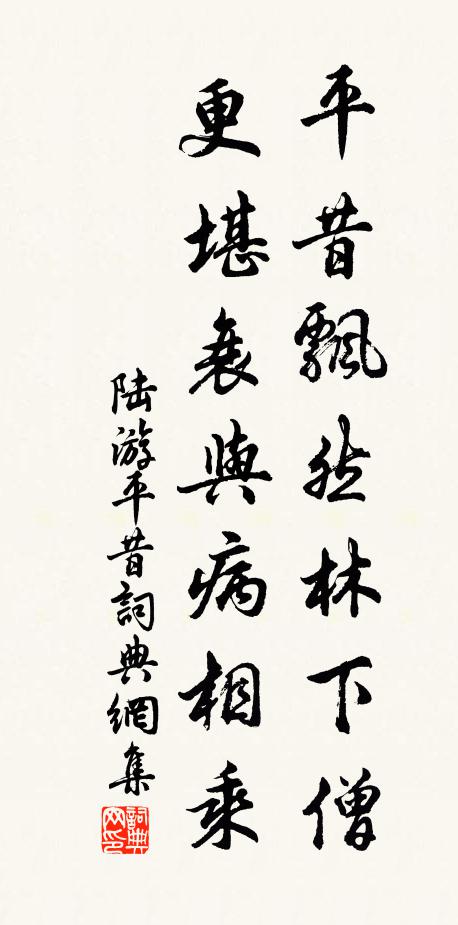 平昔飄然林下僧
更堪衰與病相乘
陸游平昔詞典網集
詞典
网印